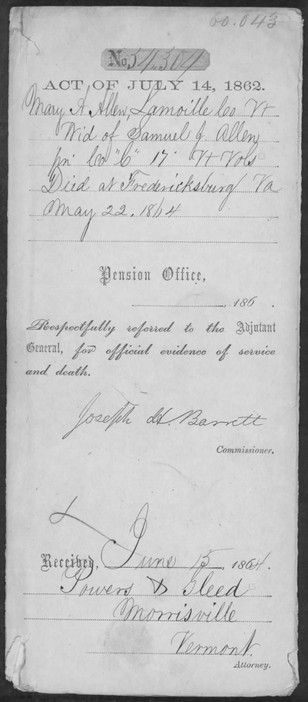 60.643
No. 54,304
ACT OF JULY 14, 1862.
Mary A. Allen, Lamoille Co Vt
Wid of Samuel J. Allen
Pri Co "C" 17" Vt Vols
Died at Fredericksburg Va
May 22. 1864
Pension Office,
186 .
Respectfully referred to the Adjutant
General, for official evidence of service
and death.
Joseph H. Barrett
Commissioner.
Received, June 15 1864.
Powers & Gleed
Morrisville
Vermont.
Attorney.